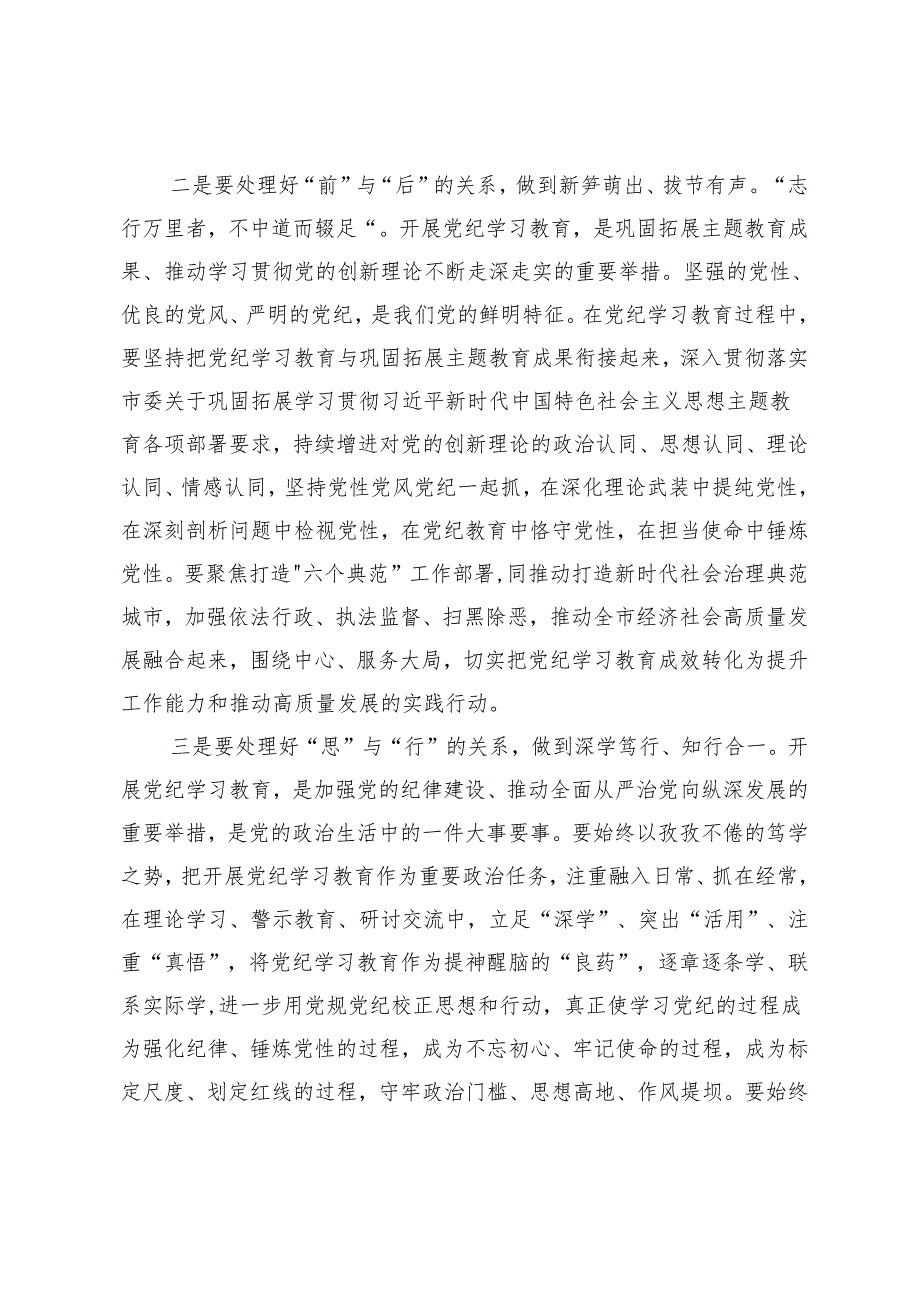 二是要处理好“前”与“后”的关系，做到新笋萌出、拔节有声。“志
行万里者，不中道而辍足“。开展党纪学习教育，是巩固拓展主题教育成
果、推动学习贯彻党的创新理论不断走深走实的重要举措。坚强的党性、
优良的党风、严明的党纪，是我们党的鲜明特征。在党纪学习教育过程中，
要坚持把党纪学习教育与巩固拓展主题教育成果衔接起来，深入贯彻落实
市委关于巩固拓展学习贯彻习近平新时代中国特色社会主义思想主题教
育各项部署要求，持续增进对党的创新理论的政治认同、思想认同、理论
认同、情感认同，坚持党性党风党纪一起抓，在深化理论武装中提纯党性，
在深刻剖析问题中检视党性，在党纪教育中恪守党性，在担当使命中锤炼
党性。要聚焦打造"六个典范”工作部署,同推动打造新时代社会治理典范
城市，加强依法行政、执法监督、扫黑除恶，推动全市经济社会高质量发
展融合起来，围绕中心、服务大局，切实把党纪学习教育成效转化为提升
工作能力和推动高质量发展的实践行动。
三是要处理好“思”与“行”的关系，做到深学笃行、知行合一。开
展党纪学习教育，是加强党的纪律建设、推动全面从严治党向纵深发展的
重要举措，是党的政治生活中的一件大事要事。要始终以孜孜不倦的笃学
之势，把开展党纪学习教育作为重要政治任务，注重融入日常、抓在经常，
在理论学习、警示教育、研讨交流中，立足“深学”、突出“活用”、注
重“真悟”，将党纪学习教育作为提神醒脑的“良药”，逐章逐条学、联
系实际学,进一步用党规党纪校正思想和行动，真正使学习党纪的过程成
为强化纪律、锤炼党性的过程，成为不忘初心、牢记使命的过程，成为标
定尺度、划定红线的过程，守牢政治门槛、思想高地、作风堤坝。要始终